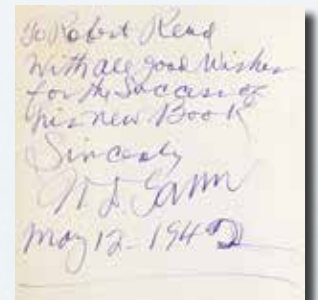 To Robert Read
With all good Wishes
for the Success of
his new Book
Sincerely
W. D. Gann
May 12 - 1942